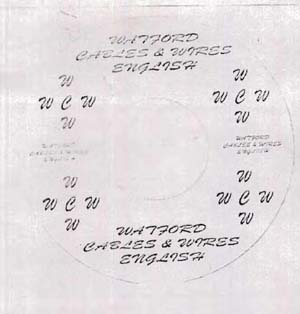 WATFORD
CABLES & WIRES
ENGLISH
W
W C W
W
W
W C W
W
WATFORD
CABLES & WIRES
ENGLISH
WATFORD
CABLES & WIRES
ENGLISH
W
W C W
W
W
W C W
W
WATFORD
CABLES & WIRES
ENGLISH